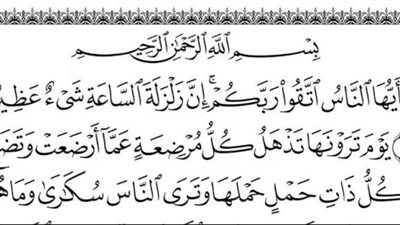 بِسْمِ ٱللَّهِ ٱلرَّحْمَٰنِ ٱلرَّحِيمِ
أَيُّهَا ٱلنَّاسُ ٱتَّقُوا۟ رَبَّكُمْ ۚ إِنَّ زَلْزَلَةَ ٱلسَّاعَةِ شَىْءٌ عَظِي
يَوْمَ تَرَوْنَهَا تَذْهَلُ كُلُّ مُرْضِعَةٍ عَمَّآ أَرْضَعَتْ وَتَضَ
كُلُّ ذَاتِ حَمْلٍ حَمْلَهَا وَتَرَى ٱلنَّاسَ سُكَٰرَىٰ وَمَا هُ